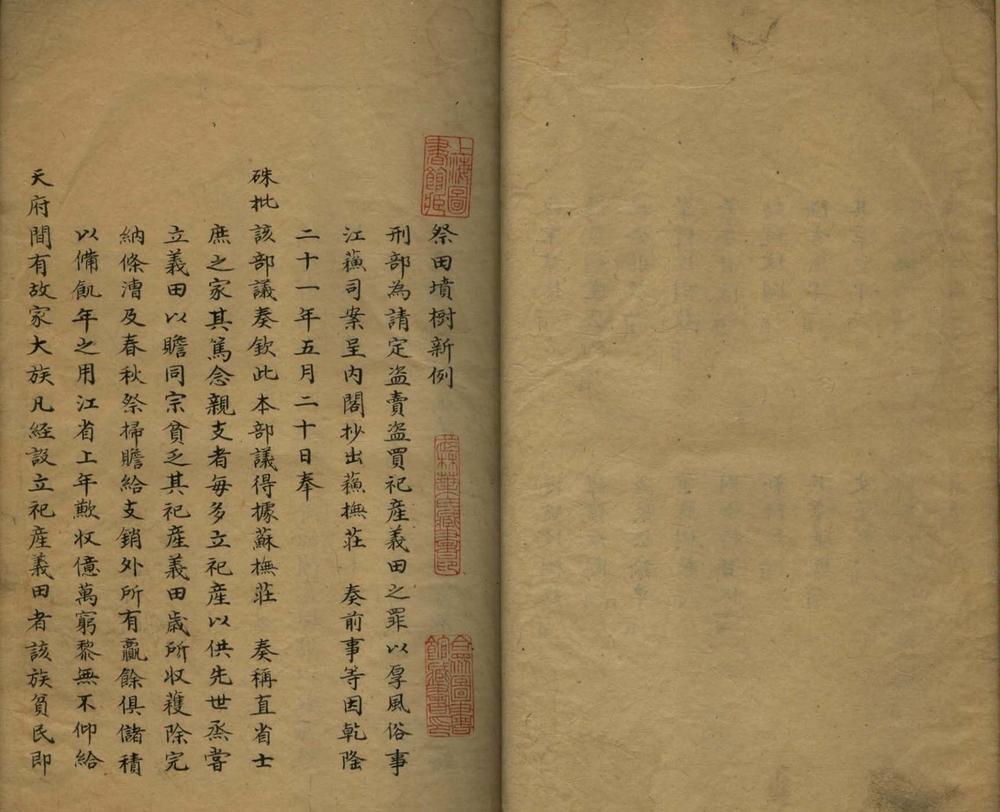 祭田墳樹新例
刑部為請定盗賣盗買祀産義田之罪以厚風俗事
江蘓司案呈内閣抄出蘓撫莊　奏前事等因乾隆
二十一年五月二十日奉
硃批該部議奏欽此本部議得據蘇撫莊　奏稱直省士
庶之家其篤念親支者每多立祀産以供先世烝嘗
立義田以贍同宗貧乏其祀産義田歲所収蓷除完
納條漕及春秋祭掃贍給支銷外所有贏餘俱儲積
以備飢年之用江省上年歉収億萬窮黎無不仰給
天府間有故家大族凡經設立祀産義田者該族貧民即
上海圖書館藏
武林葉氏藏書印
合眾圖書館藏書印